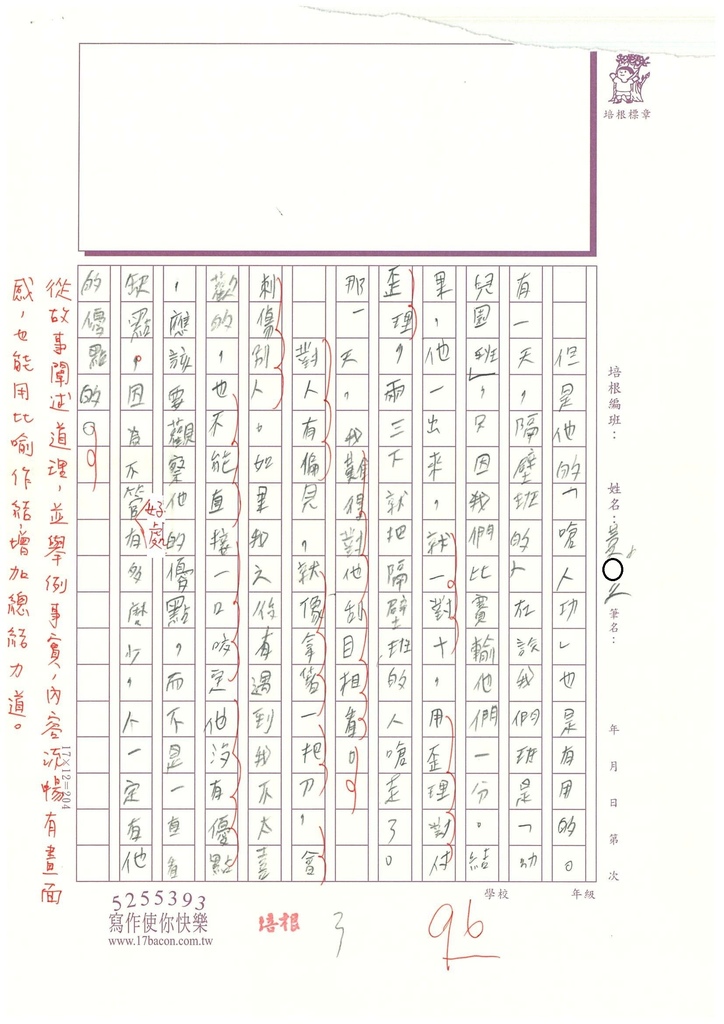 培根標章
培根編班：
姓名：
筆名：
年　月　日　第　次
學校　年級
但是他的「嗆人功」也是有用的。
有一天，隔壁班的人在說我們班是「幼
兒園班」，只因我們比賽輸他們一分。結
果，他一出來，就一對十，用歪理對付
歪理，兩三下就把隔壁班的人嗆走了。
那一天，我難得對他刮目相看。
對人有偏見，就像拿著一把刀，會
刺傷別人。如果我之後有遇到我不太喜
歡的，也不能直接一口咬定他沒有優點
，應該要觀察他的優點，而不是一直看
缺點。因為不管有多麼少，人一定有他
好處
的優點的。
17×12=204
從故事闡述道理，並舉例事實，內容流暢有畫面
感，也能用比喻作結，增加總結力道。
5255393
寫作使你快樂
www.17bacon.com.tw
培根
3
96